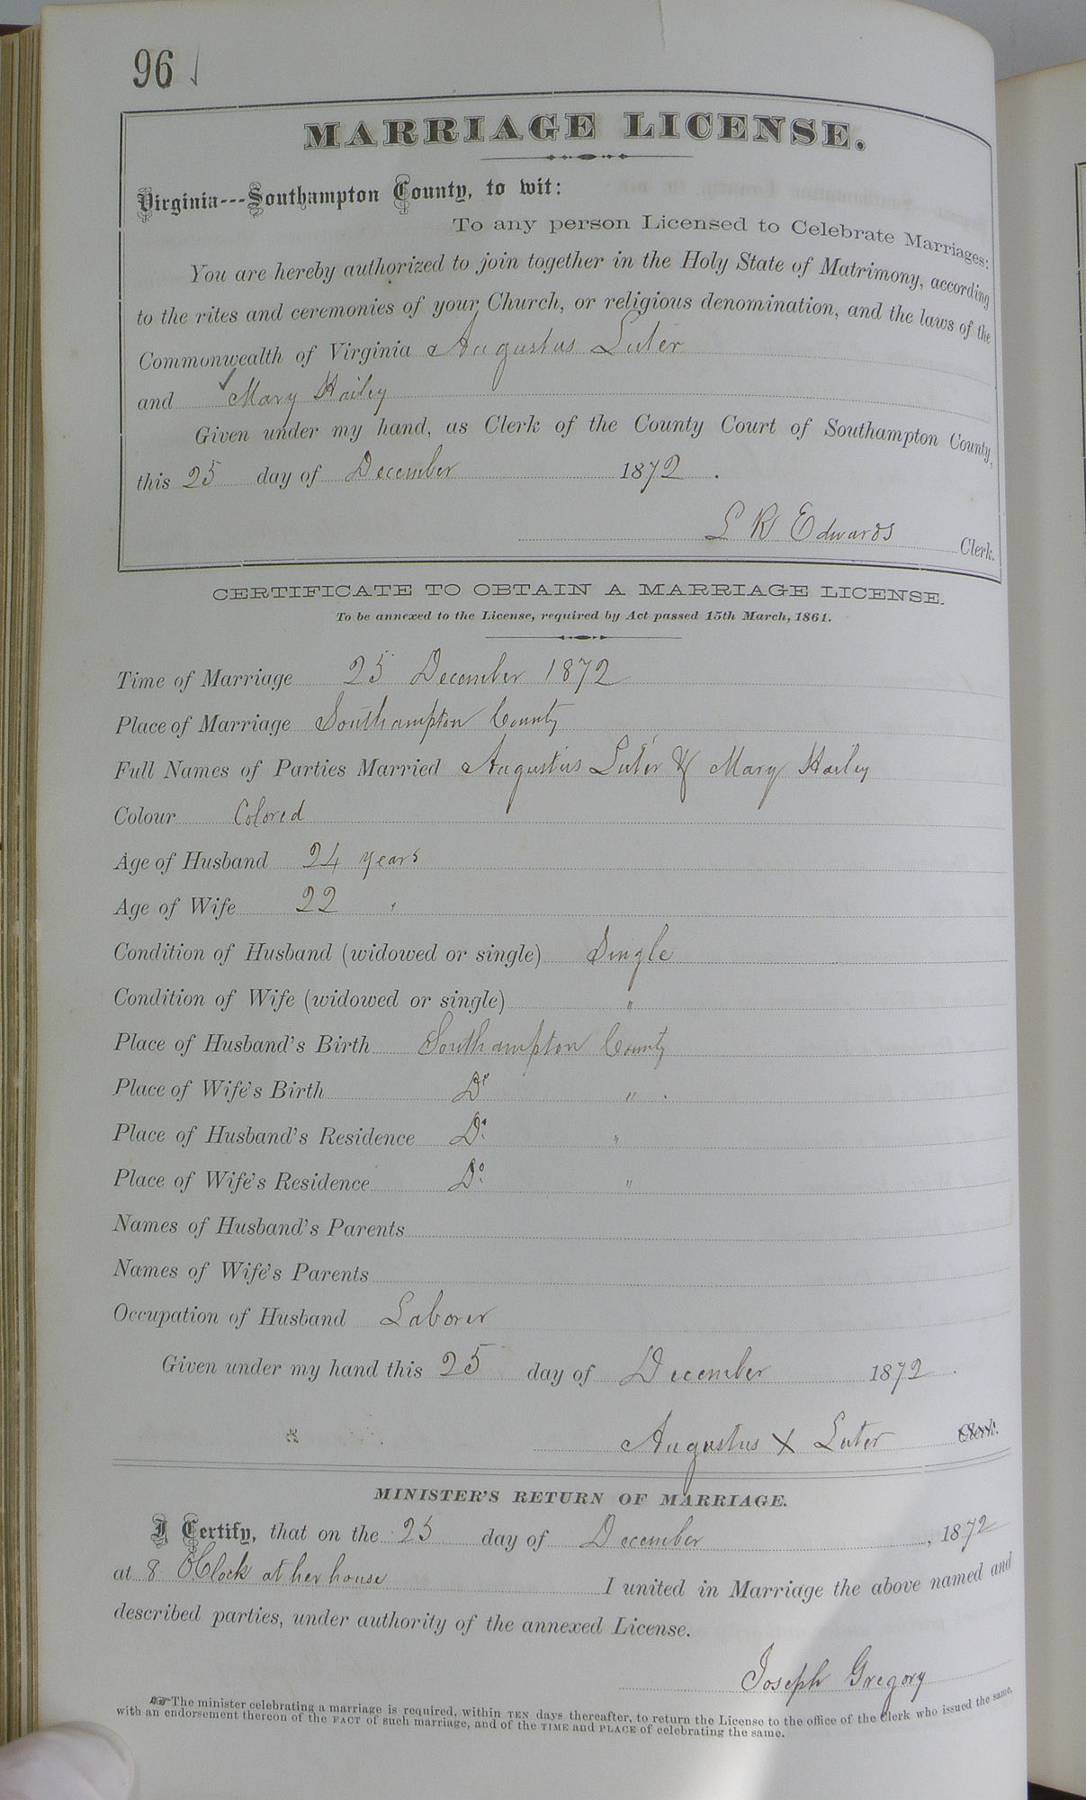 96 √
MARRIAGE LICENSE.
Virginia---Southampton County, to wit:
To any person Licensed to Celebrate Marriages:
You are hereby authorized to join together in the Holy State of Matrimony, according
to the rites and ceremonies of your Church, or religious denomination, and the laws of the
Commonwealth of Virginia Augustus Luter
and ✓ Mary Hailey
Given under my hand, as Clerk of the County Court of Southampton County,
this 25 day of December 1872.
L R Edwards Clerk.
CERTIFICATE TO OBTAIN A MARRIAGE LICENSE.
To be annexed to the License, required by Act passed 15th March, 1861.
Time of Marriage 25 December 1872
Place of Marriage Southampton County
Full Names of Parties Married Augustus Luter & Mary Hailey
Colour Colored
Age of Husband 24 years
Age of Wife 22 "
Condition of Husband (widowed or single) Single
Condition of Wife (widowed or single) "
Place of Husband's Birth Southampton County
Place of Wife's Birth Do "
Place of Husband's Residence Do "
Place of Wife's Residence Do "
Names of Husband's Parents
Names of Wife's Parents
Occupation of Husband Laborer
Given under my hand this 25 day of December 1872.
Augustus X Luter Clerk.
MINISTER'S RETURN OF MARRIAGE.
I Certify, that on the 25 day of December, 1872
at 8 OClock at her house I united in Marriage the above named and
described parties, under authority of the annexed License.
Joseph Gregory
☞ The minister celebrating a marriage is required, within TEN days thereafter, to return the License to the office of the Clerk who issued the same,
with an endorsement thereon of the FACT of such marriage, and of the TIME and PLACE of celebrating the same.